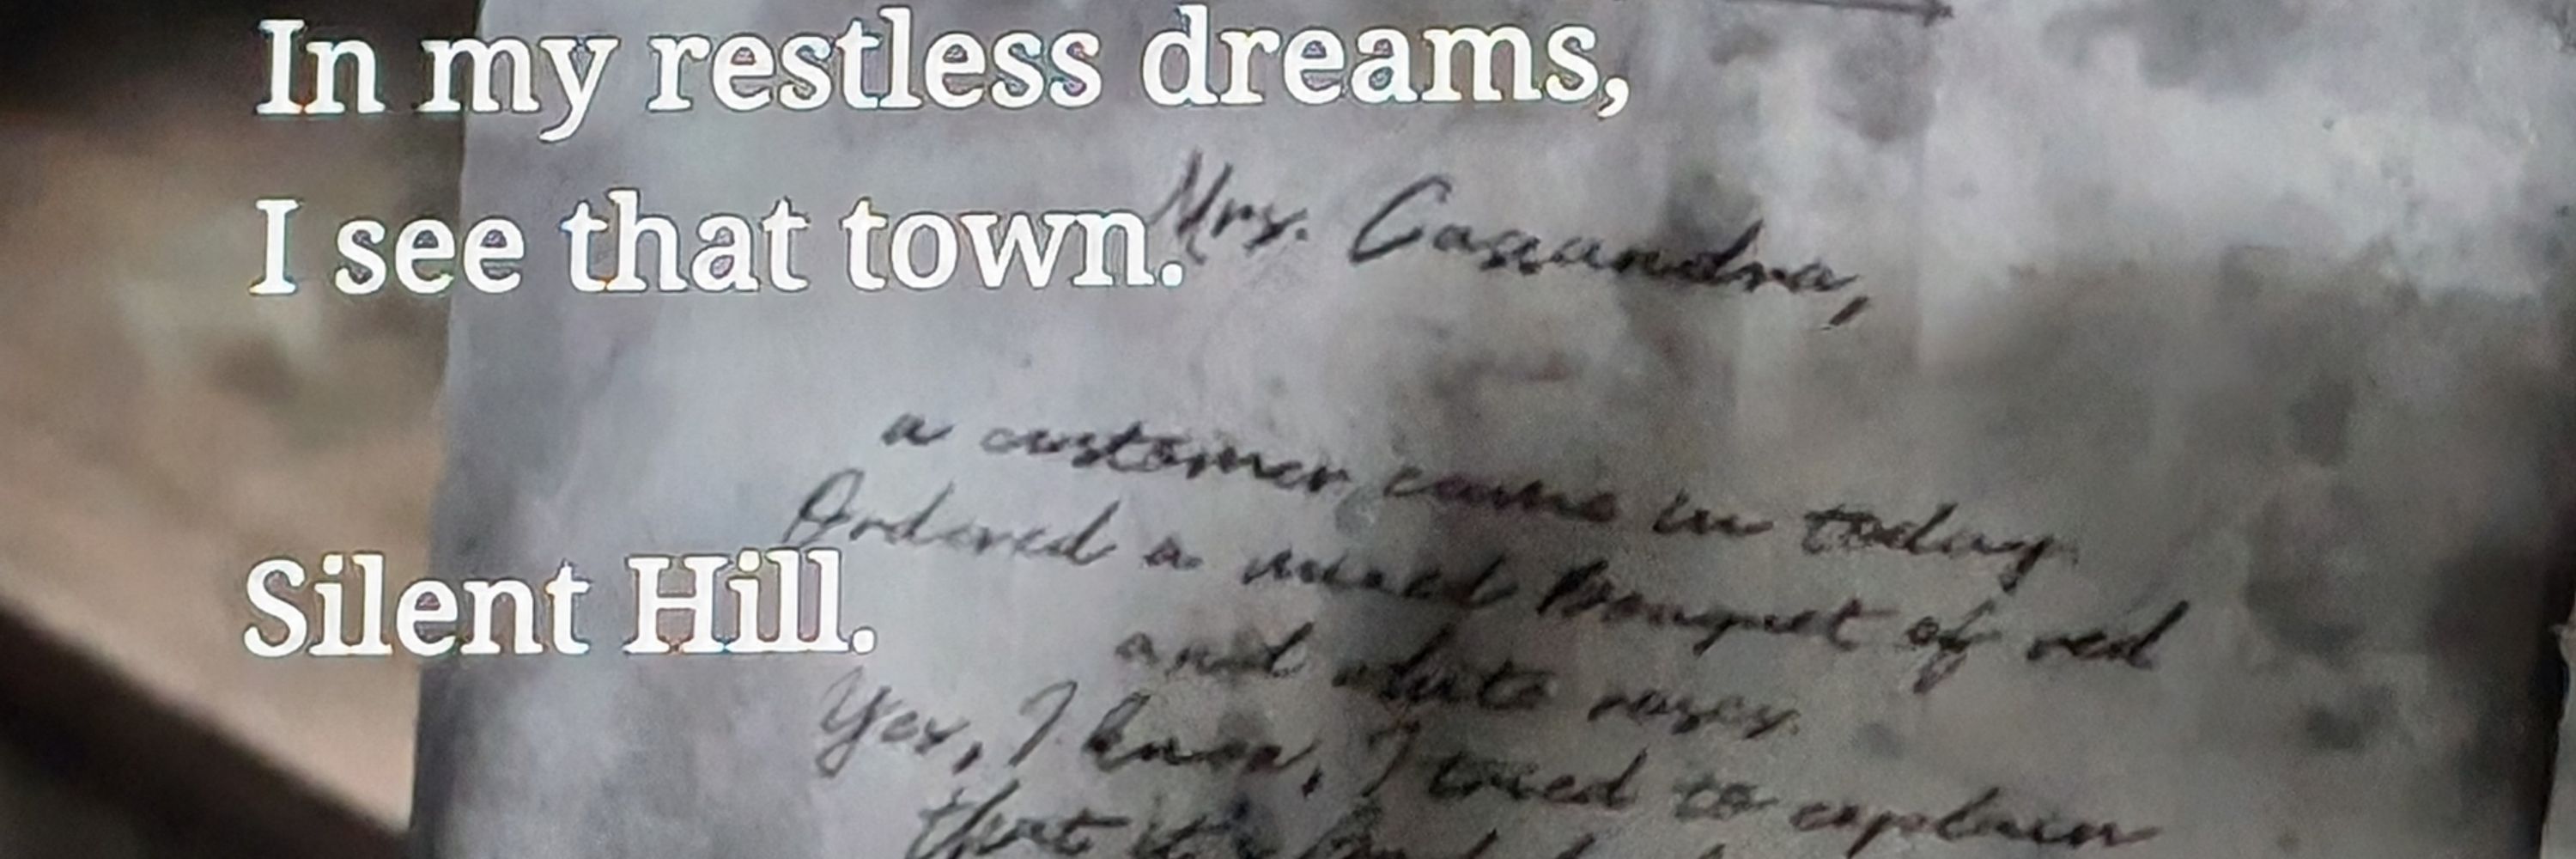 In my restless dreams,
I see that town.
Silent Hill.
Mrs. Casandra,
a customer came in today.
Ordered a mixed bouquet of red
and white roses.
Yes, I know, I tried to explain
that it's bad